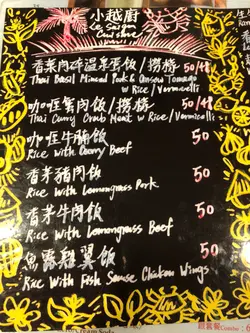 小越廚
Le Saigon
Cuisine
香菜肉碎溫泉蛋飯/撈檬 50/48
Thai Basil Minced Pork & Onsen Tamago
w Rice/Vermicelli
咖喱蟹肉飯/撈檬 50/48
Thai Curry Crab Meat w Rice/Vermicelli
咖喱牛腩飯 50
Rice with Curry Beef
香茅豬肉飯 50
Rice with Lemongrass Pork
香茅牛肉飯 50
Rice with Lemongrass Beef
魚露雞翼飯 50
Rice With Fish Sauce Chicken Wings